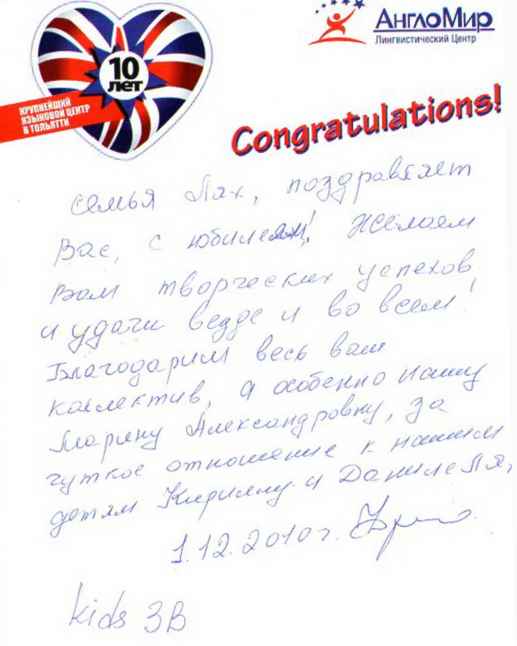 10
лет
КРУПНЕЙШИЙ
ЯЗЫКОВОЙ ЦЕНТР
В ТОЛЬЯТТИ
АнглоМир
Лингвистический Центр
Congratulations!
семья Лях, поздравляет
Вас, с юбилеям! Желаем
Вам творческих успехов
и удачи везде и во всем!
Благодарим весь ваш
коллектив, а особенно нашу
Марину Александровну, за
чуткое отношение к нашим
детям Кириллу и Даниле Ля,
1.12.2010г.
kids 3В